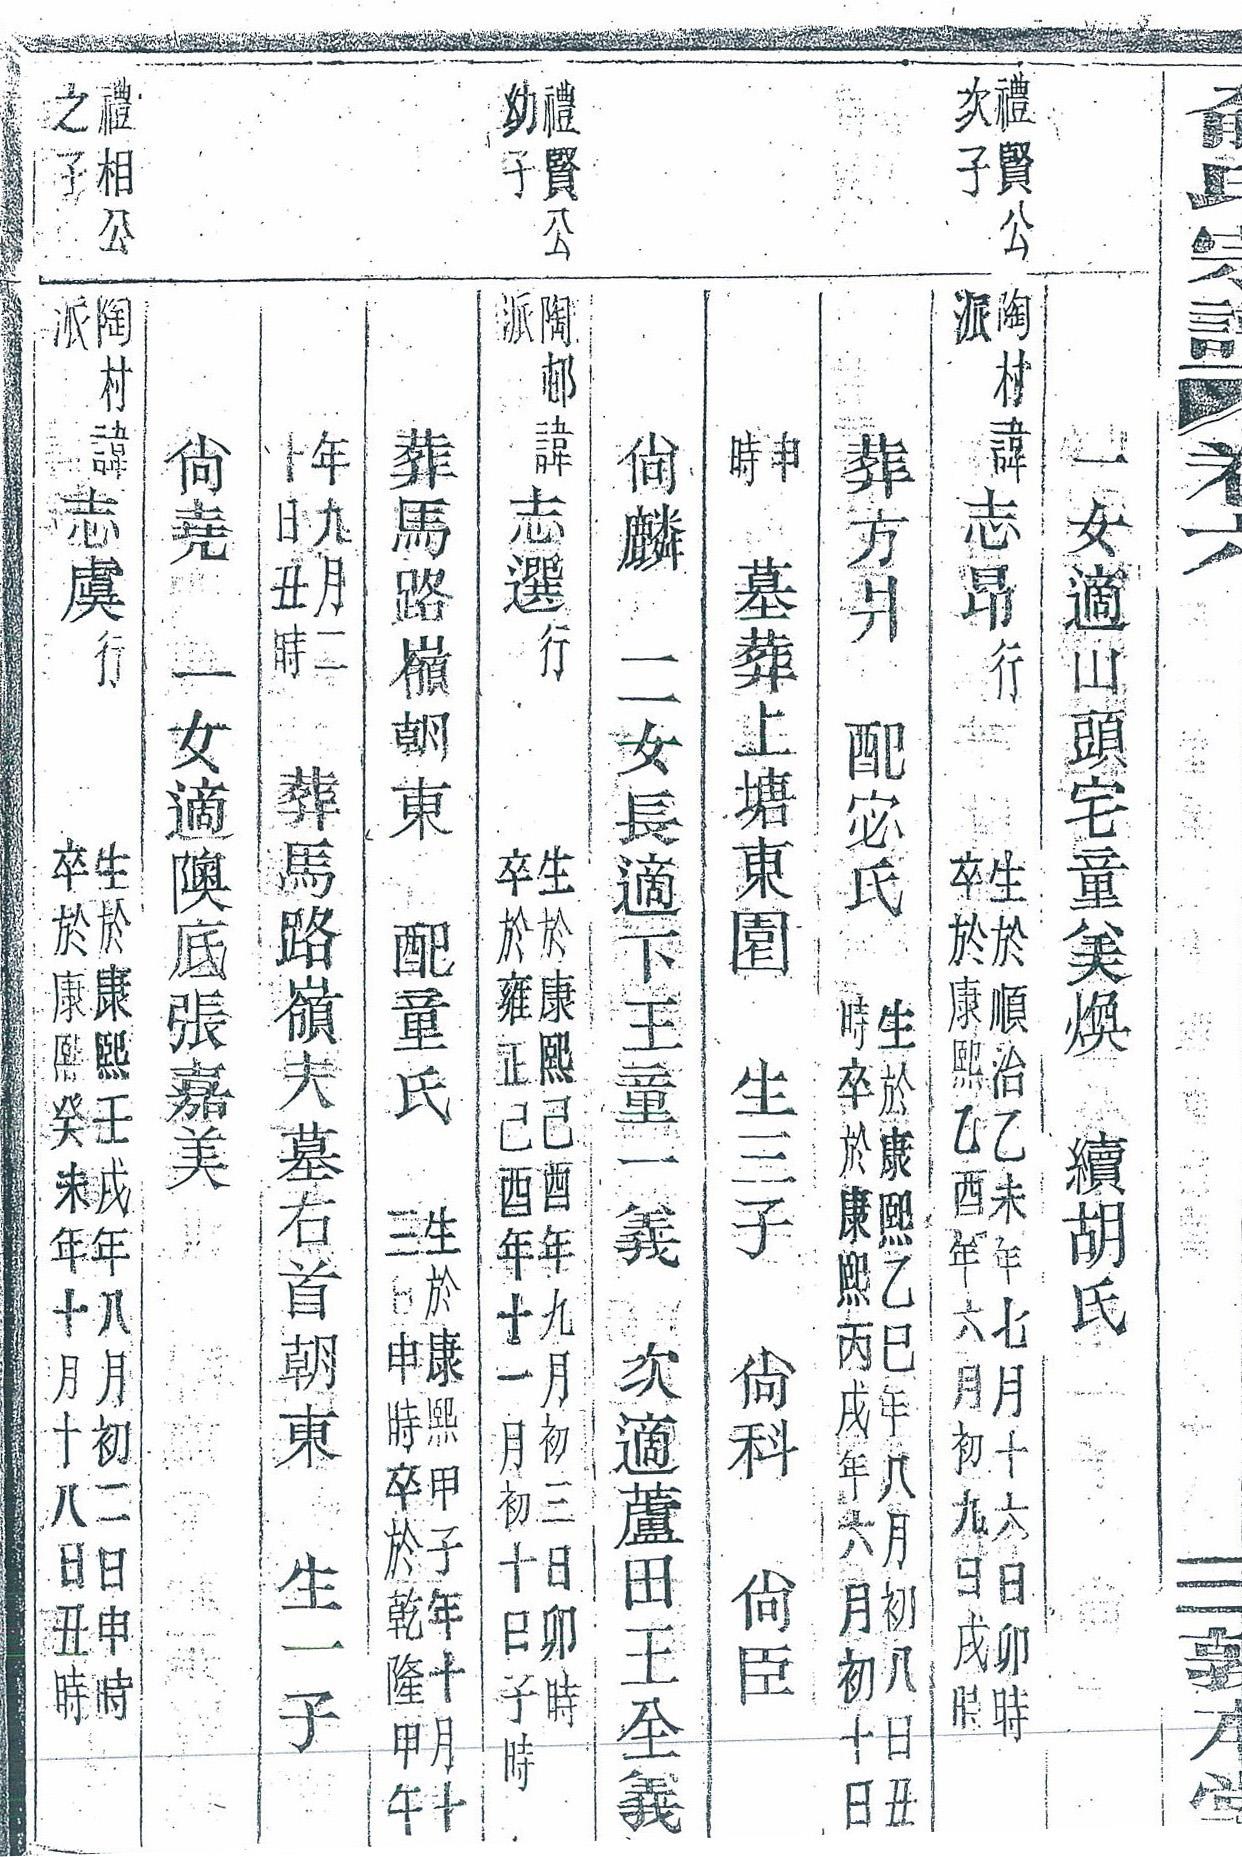 俞氏宗譜 卷六
一女適山頭宅童美煥 續胡氏
禮賢公
次子
陶村諱
派
志昂行
生於順治乙未年七月十六日卯時
卒於康熙乙酉年六月初九日戌時
葬方爿 配宓氏
生於康熙乙巳年八月初八日丑
時卒於康熙丙戌年六月初十日
申
時
墓葬上塘東園 生三子 尙科 尙臣
尙麟 二女長適下王童一義 次適蘆田王全義
禮賢公
幼子
陶邨諱
派
志選行
生於康熙己酉年九月初三日卯時
卒於雍正己酉年十一月初十日子時
葬馬路嶺朝東 配童氏
生於康熙甲子年十月十
三日申時卒於乾隆甲午
年九月二
十日丑時
葬馬路嶺夫墓右首朝東 生一子
尙堯 一女適隩底張嘉美
禮相公
之子
陶村諱
派
志虞行
生於康熙壬戌年八月初二日申時
卒於康熙癸未年十月十八日丑時